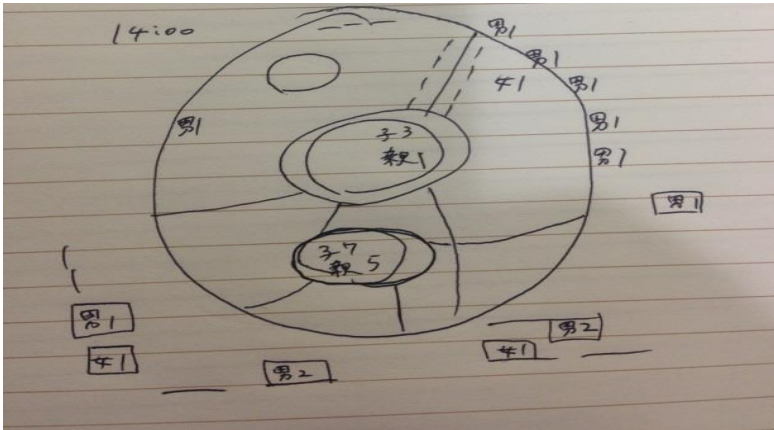 14:00
男1
男1
女1
男1
男1
男1
男1
子3
親1
男1
子7
親5
男1
女1
男2
男2
女1